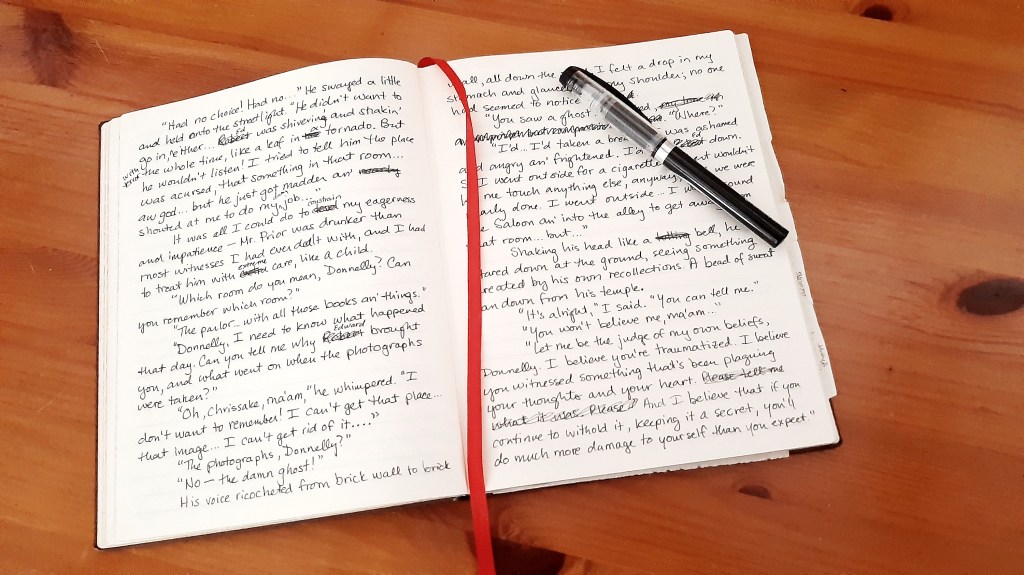 "Had no choice! Had no..." He swayed a little
and held onto the streetlight. "He didn't want to
go in, either... Ed was shivering and shakin'
the whole time, like a leaf in a tornado. But
he wouldn't listen! I tried to tell him the place
was acursed, that something in that room...
aw god... but he just got madder, an'
shouted at me to do my job..."
It was all I could do to constrain my eagerness
and impatience — Mr. Prior was drunker than
most witnesses I had ever dealt with, and I had
to treat him with extreme care, like a child.
"Which room do you mean, Donnelly? Can
you remember which room?"
"The parlor... with all those books an' things."
"Donnelly, I need to know what happened
that day. Can you tell me why Edward brought
you, and what went on when the photographs
were taken?"
"Oh, Chrissake, ma'am," he whimpered. "I
don't want to remember! I can't get that place...
that image... I can't get rid of it...."
"The photographs, Donnelly?"
"No — the damn ghost!"
His voice ricocheted from brick wall to brick
wall, all down the I felt a drop in my
stomach and glanced my shoulder; no one
had seemed to notice
"You saw a ghost. "Where?"
"I'd... I'd taken a brea was ashamed
and angry an' frightened. I'd down.
So I went outside for a cigarette wouldn't
me touch anything else, anyway, we were
early done. I went outside... I w ound
e saloon an' into the alley to get away om
at room... but..."
Shaking his head like a bell, he
tared down at the ground, seeing something
reated by his own recollections. A bead of sweat
an down from his temple.
"It's alright," I said. "You can tell me."
"You won't believe me, ma'am..."
"Let me be the judge of my own beliefs,
Donnelly. I believe you're traumatized. I believe
you witnessed something that's been plaguing
your thoughts and your heart. Please tell me
what it was. Please? And I believe that if you
continue to withold it, keeping it a secret, you'll
do much more damage to yourself than you expect."